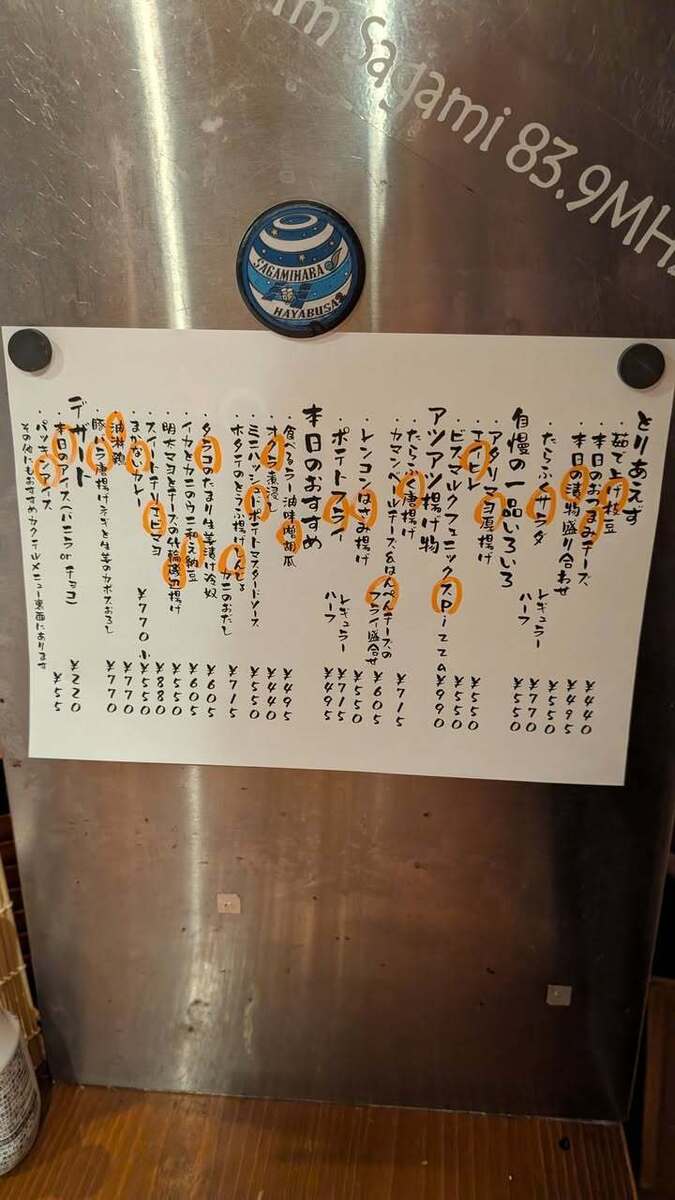 fm Sagami 83.9MHz
SAGAMIHARA
HAYABUSA2
とりあえず
・茹で上げ枝豆 ¥440
・本日のおつまみチーズ ¥495
・本日の漬物盛り合わせ ¥550
・たらふくサラダ レギュラー ¥770
ハーフ ¥550
自慢の一品いろいろ
・アタリマヨ唐揚げ ¥550
・エイヒレ ¥550
・ビスマルクフェニックスPizza ¥990
アツアツ揚げ物
・たらふく唐揚げ ¥715
・カマンベールチーズ&はんぺんチーズのフライ盛合せ ¥605
・レンコンはさみ揚げ
・ポテトフライ レギュラー ¥715
ハーフ ¥495
本日のおすすめ
・食べるラー油味噌胡瓜 ¥495
・オクラ煮浸し ¥440
・ミニハッシュドポテトマスタードソース ¥550
・ホタテのとうふ揚げしんじょ カニのおだし ¥715
・タラコのたまり生姜漬け冷奴 ¥605
・イカとカニのウニ和え納豆 ¥605
・明太マヨとチーズの竹輪磯辺揚げ ¥550
・スイートチリエビマヨ ¥880
・まかないカレー ¥770 小¥550
・油淋鶏 ¥770
・豚バラ唐揚げネギと生姜のカボスおろし ¥770
デザート
・本日のアイス(バニラ or チョコ) ¥220
・パッキンアイス ¥55
その他におすすめカクテルメニュー裏面にあります